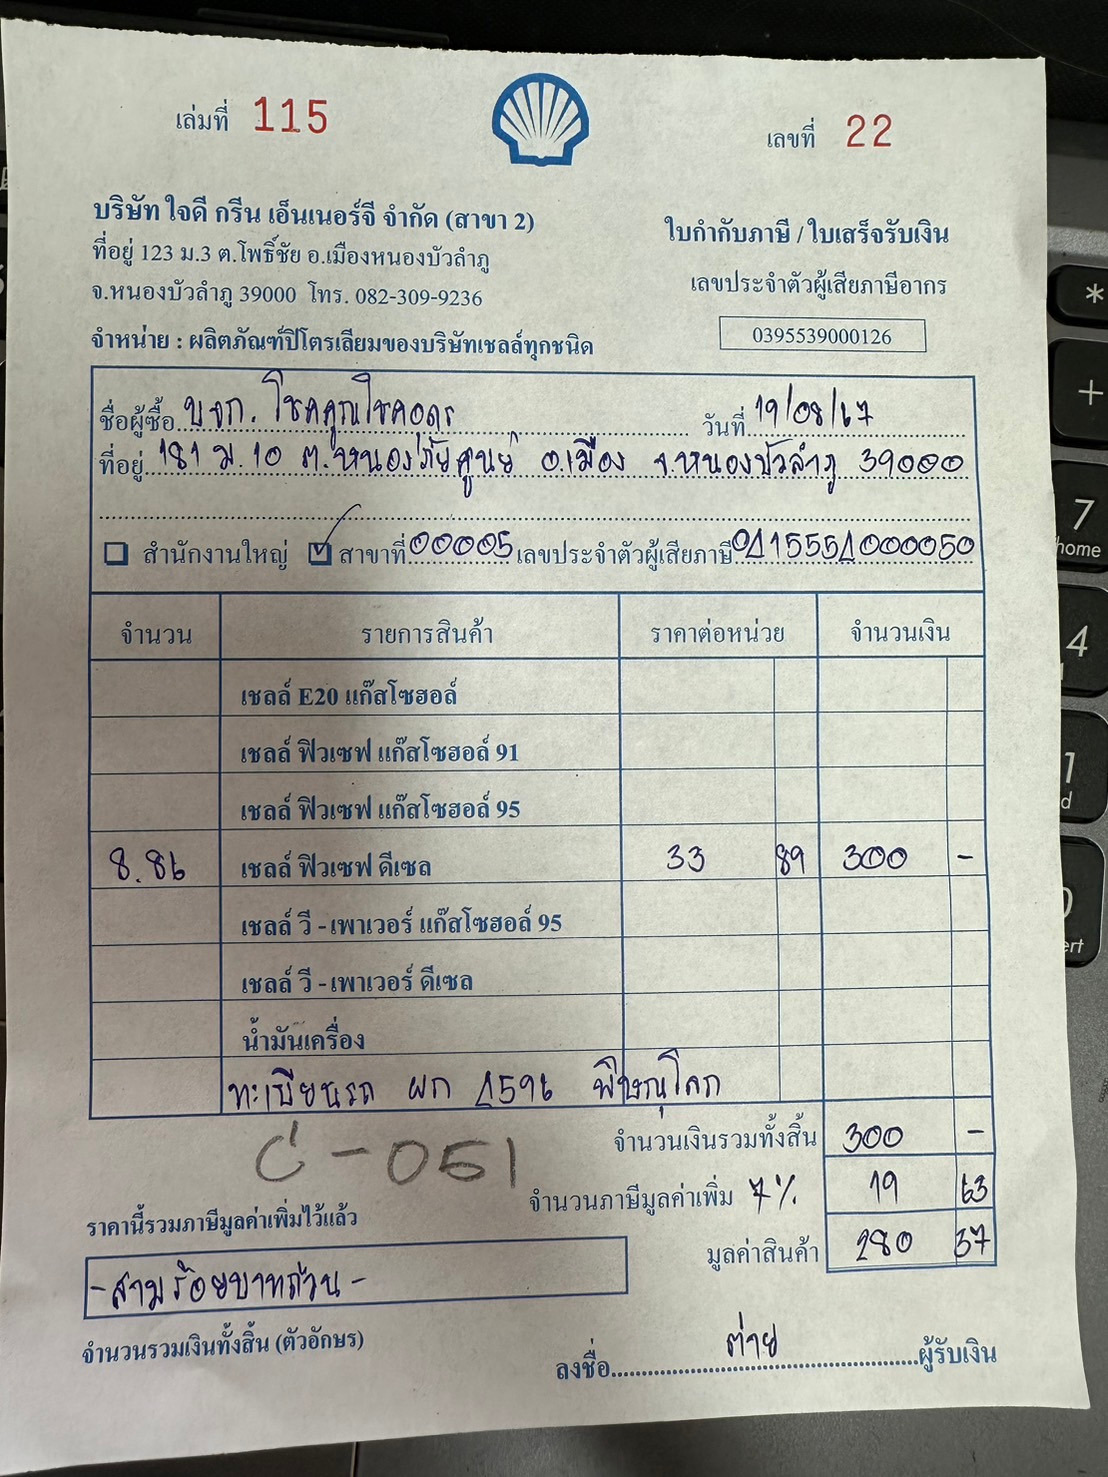 เล่มที่ 115
เลขที่ 22
บริษัท ใจดี กรีน เอ็นเนอร์จี จำกัด (สาขา 2)
ที่อยู่ 123 ม.3 ต.โพธิ์ชัย อ.เมืองหนองบัวลำภู
จ.หนองบัวลำภู 39000 โทร. 082-309-9236
จำหน่าย : ผลิตภัณฑ์ปิโตรเลียมของบริษัทเชลล์ทุกชนิด
ใบกำกับภาษี / ใบเสร็จรับเงิน
เลขประจำตัวผู้เสียภาษีอากร
0395539000126
ชื่อผู้ซื้อ บจก. โชคคูณโชคอดร วันที่ 19/08/67
ที่อยู่ 181 ม.10 ต.หนองภัยศูนย์ อ.เมือง จ.หนองบัวลำภู 39000
สำนักงานใหญ่ สาขาที่ 00005 เลขประจำตัวผู้เสียภาษี 0415554000050
จำนวน รายการสินค้า ราคาต่อหน่วย จำนวนเงิน
เชลล์ E20 แก๊สโซฮอล์
เชลล์ ฟิวเซฟ แก๊สโซฮอล์ 91
เชลล์ ฟิวเซฟ แก๊สโซฮอล์ 95
8.86 เชลล์ ฟิวเซฟ ดีเซล 33 89 300 -
เชลล์ วี - เพาเวอร์ แก๊สโซฮอล์ 95
เชลล์ วี - เพาเวอร์ ดีเซล
น้ำมันเครื่อง
ทะเบียนรถ ผก 4596 พิษณุโลก
จำนวนเงินรวมทั้งสิ้น 300 -
C-051
จำนวนภาษีมูลค่าเพิ่ม 7% 19 63
ราคานี้รวมภาษีมูลค่าเพิ่มไว้แล้ว
มูลค่าสินค้า 280 37
-สามร้อยบาทถ้วน-
จำนวนรวมเงินทั้งสิ้น (ตัวอักษร)
ลงชื่อ ต่าย ผู้รับเงิน